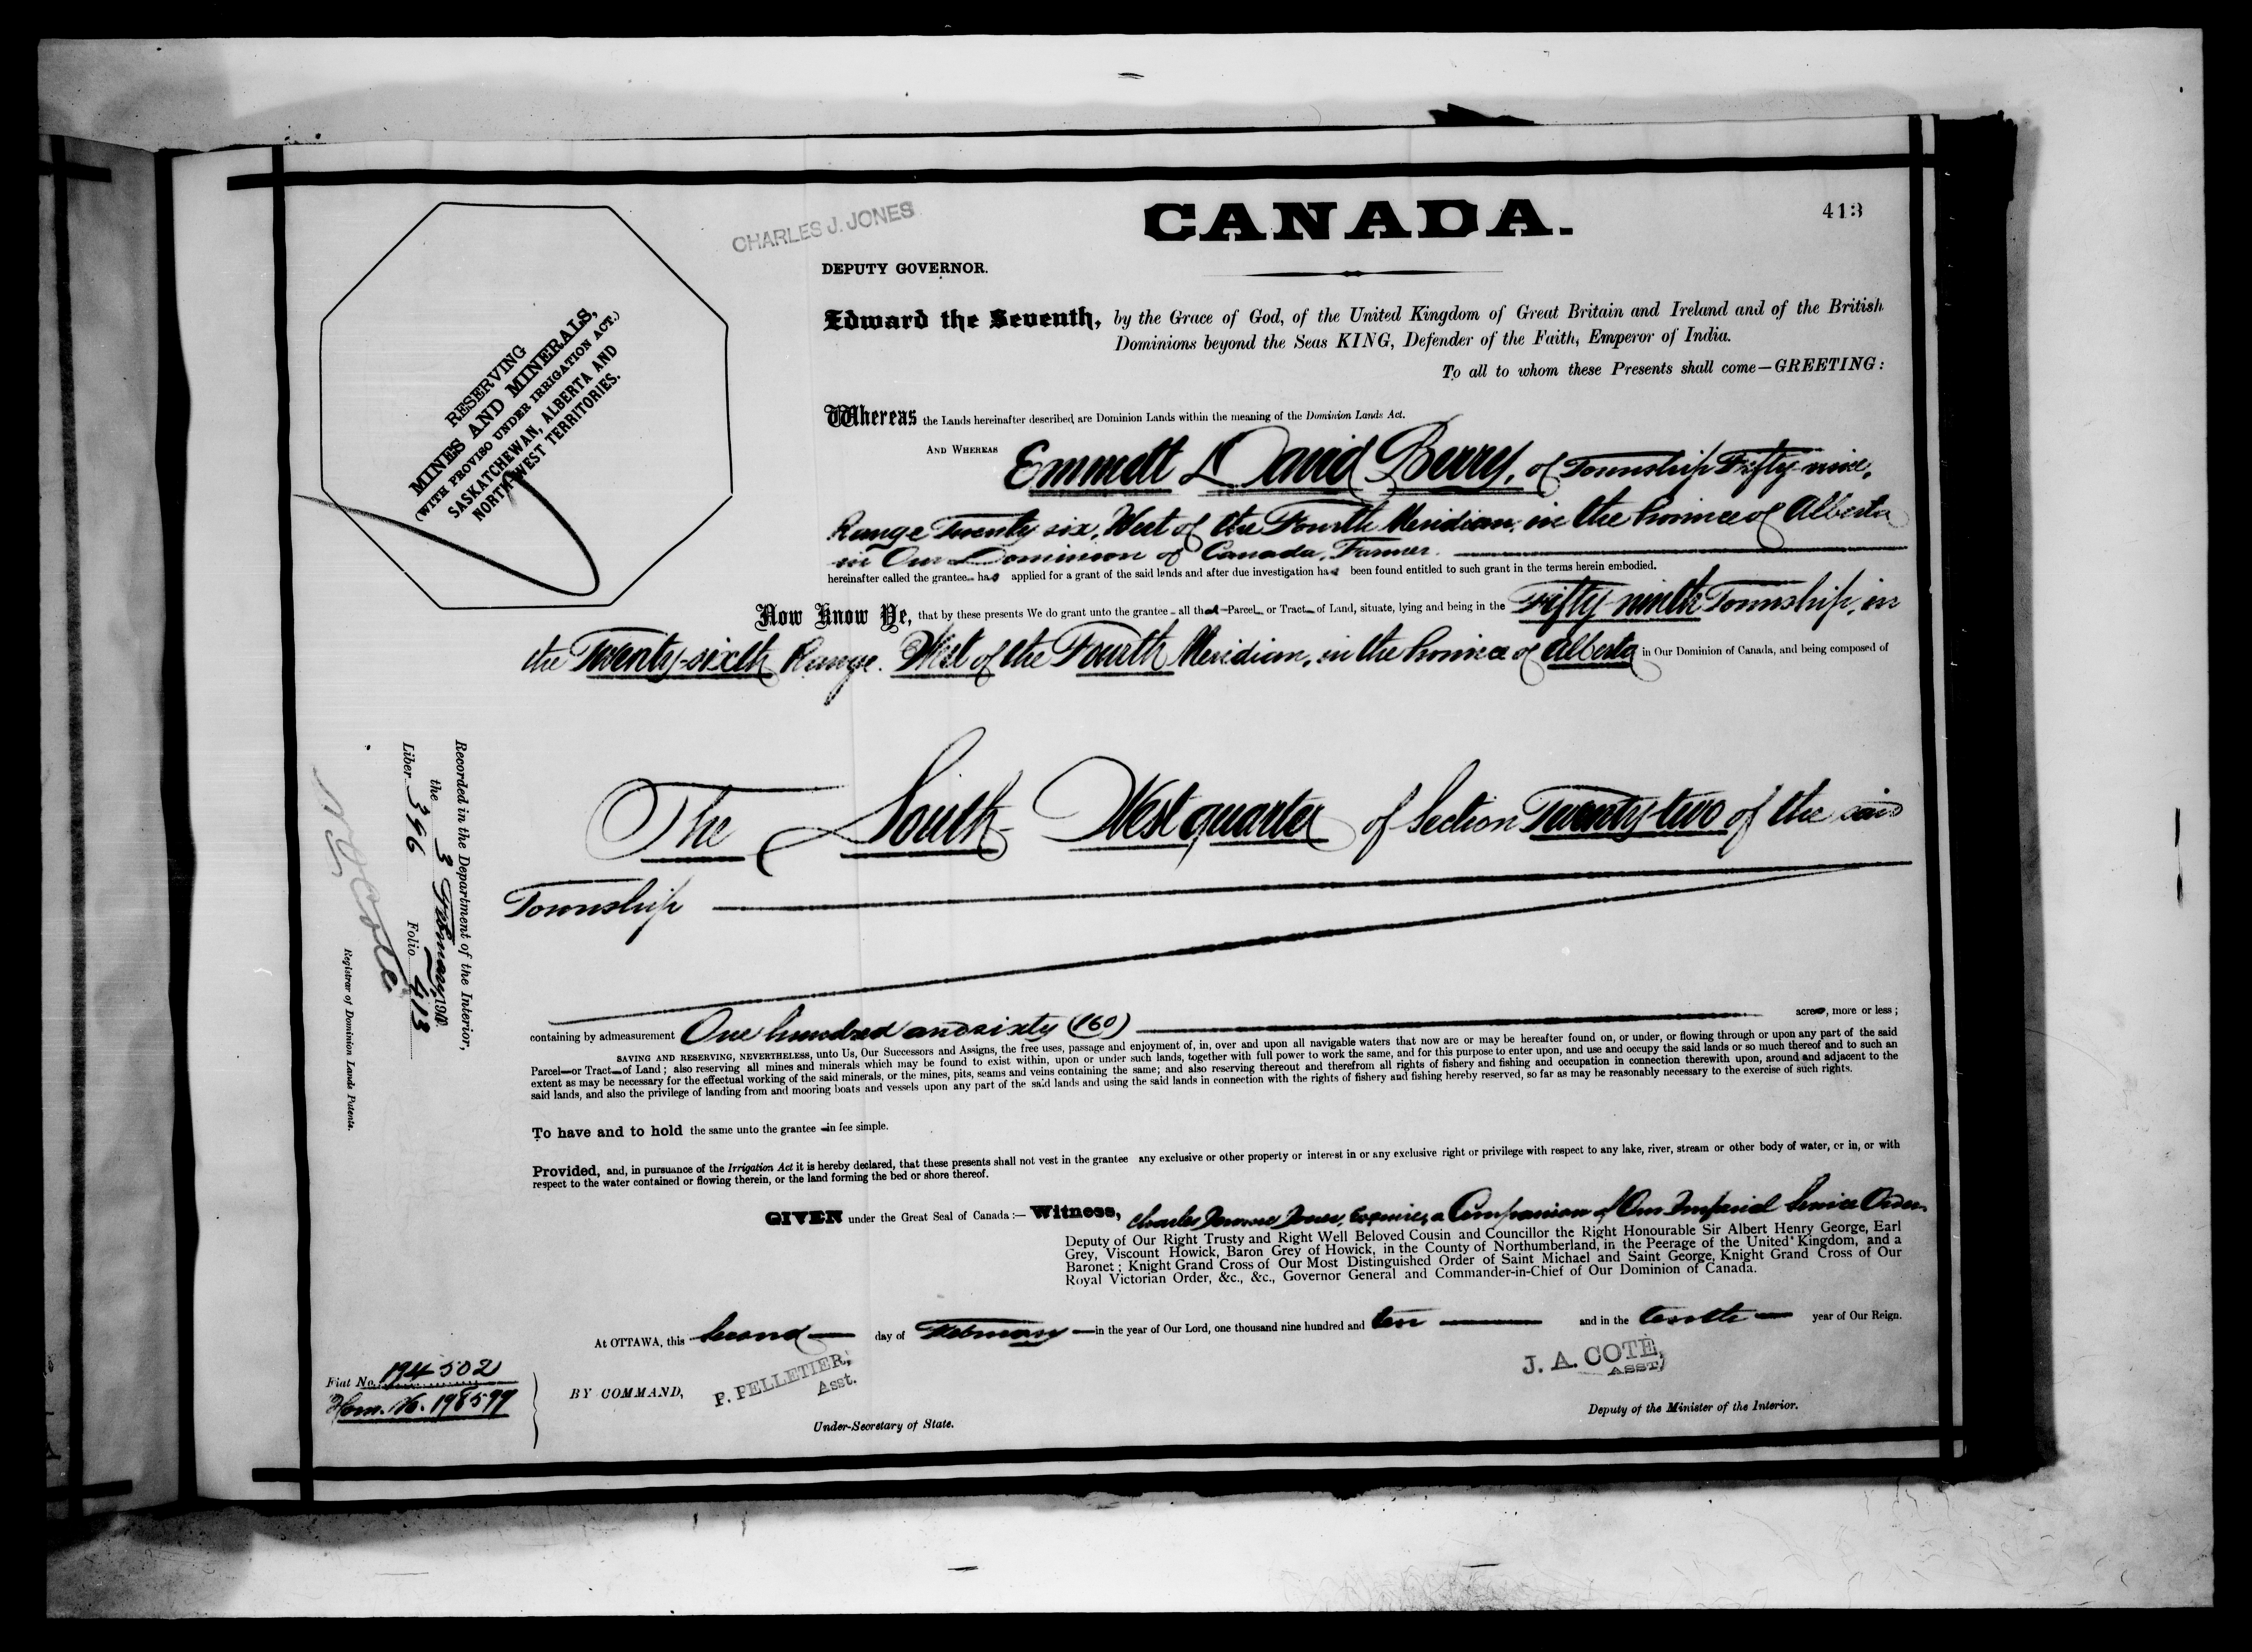 CANADA.
413
CHARLES J. JONES
DEPUTY GOVERNOR.
RESERVING
MINES AND MINERALS,
(WITH PROVISO UNDER IRRIGATION ACT.)
SASKATCHEWAN, ALBERTA AND
NORTHWEST TERRITORIES.
Edward the Seventh, by the Grace of God, of the United Kingdom of Great Britain and Ireland and of the British
Dominions beyond the Seas KING, Defender of the Faith, Emperor of India.
To all to whom these Presents shall come—GREETING:
Whereas the Lands hereinafter described are Dominion Lands within the meaning of the Dominion Lands Act.
AND WHEREAS Emmett David Berry, of Township Fifty-nine,
Range Twenty six, West of the Fourth Meridian, in the Province of Alberta
in Our Dominion of Canada, Farmer.
hereinafter called the grantee has applied for a grant of the said lands and after due investigation has been found entitled to such grant in the terms herein embodied.
Now Know Ye, that by these presents We do grant unto the grantee all that Parcel or Tract of Land, situate, lying and being in the Fifty-ninth Township, in
the Twenty-sixth Range. West of the Fourth Meridian, in the Province of Alberta in Our Dominion of Canada, and being composed of
The South West quarter of Section Twenty-two of the said
Township
containing by admeasurement One hundred and sixty (160) acres, more or less;
SAVING AND RESERVING, NEVERTHELESS, unto Us, Our Successors and Assigns, the free uses, passage and enjoyment of, in, over and upon all navigable waters that now are or may be hereafter found on, or under, or flowing through or upon any part of the said
Parcel or Tract of Land; also reserving all mines and minerals which may be found to exist within, upon or under such lands, together with full power to work the same, and for this purpose to enter upon, and use and occupy the said lands or so much thereof and to such an
extent as may be necessary for the effectual working of the said minerals, or the mines, pits, seams and veins containing the same; and also reserving thereout and therefrom all rights of fishery and fishing and occupation in connection therewith upon, around and adjacent to the
said lands, and also the privilege of landing from and mooring boats and vessels upon any part of the said lands and using the said lands in connection with the rights of fishery and fishing hereby reserved, so far as may be reasonably necessary to the exercise of such rights.
To have and to hold the same unto the grantee in fee simple.
Provided, and, in pursuance of the Irrigation Act it is hereby declared, that these presents shall not vest in the grantee any exclusive or other property or interest in or any exclusive right or privilege with respect to any lake, river, stream or other body of water, or in, or with
respect to the water contained or flowing therein, or the land forming the bed or shore thereof.
GIVEN under the Great Seal of Canada:— Witness, Charles Jones, Esquire, a Companion of Our Imperial Service Order,
Deputy of Our Right Trusty and Right Well Beloved Cousin and Councillor the Right Honourable Sir Albert Henry George, Earl
Grey, Viscount Howick, Baron Grey of Howick, in the County of Northumberland, in the Peerage of the United Kingdom, and a
Baronet; Knight Grand Cross of Our Most Distinguished Order of Saint Michael and Saint George, Knight Grand Cross of Our
Royal Victorian Order, &c., &c., Governor General and Commander-in-Chief of Our Dominion of Canada.
At OTTAWA, this second day of February in the year of Our Lord, one thousand nine hundred and ten and in the tenth year of Our Reign.
BY COMMAND,
P. PELLETIER,
Asst.
Under-Secretary of State.
J. A. COTE,
ASST
Deputy of the Minister of the Interior.
Fiat No. 194502
Hom. No. 198599
Recorded in the Department of the Interior,
the 3 February, 1910.
Liber 396 Folio 413
N. O. Coté
Registrar of Dominion Lands Patents.